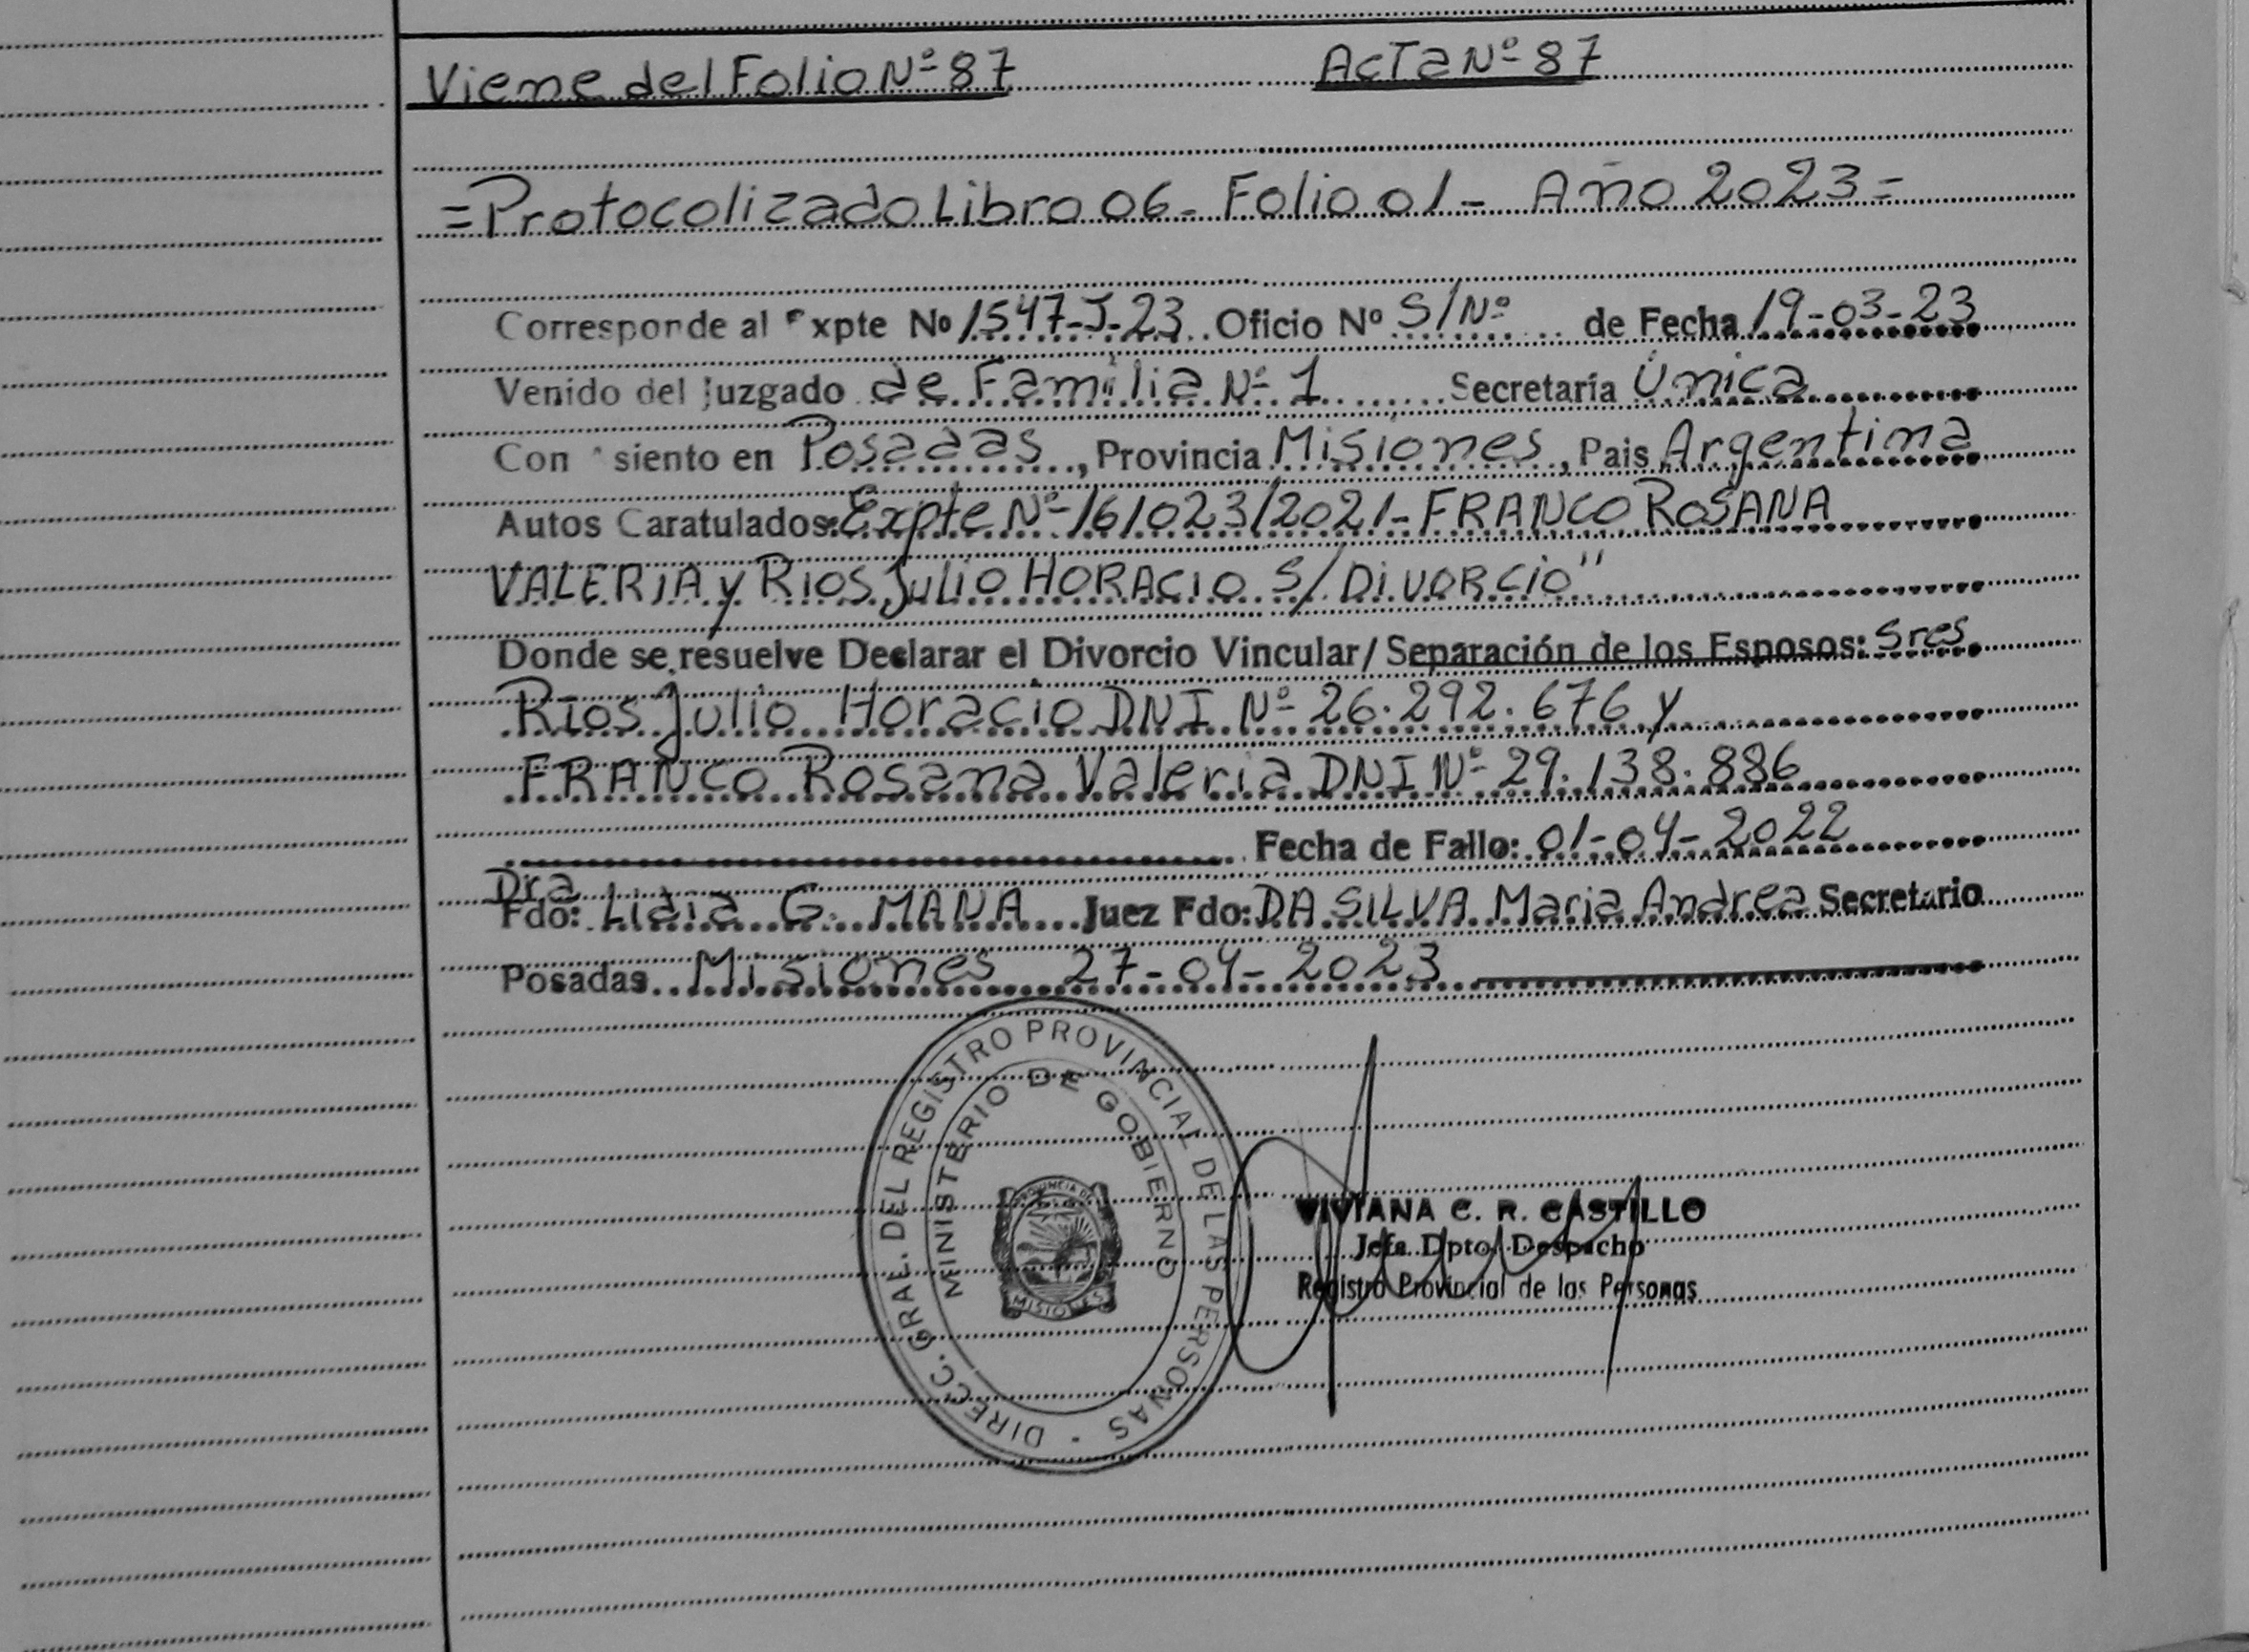 Viene del Folio Nº 87 Acta Nº 87
= Protocolizado Libro 06 - Folio 01 - Año 2023 =
Corresponde al Expte Nº 1547-J-23 Oficio Nº S/Nº de Fecha 19-03-23
Venido del Juzgado de Familia Nº 1 Secretaría Única
Con asiento en Posadas, Provincia Misiones, Pais Argentina
Autos Caratulados: Expte Nº 161023/2021 - FRANCO ROSANA
VALERIA y RIOS JULIO HORACIO S/ DIVORCIO"
Donde se resuelve Declarar el Divorcio Vincular/ Separación de los Esposos: Sres
Rios Julio Horacio DNI Nº 26.292.676 y
FRANCO Rosana Valeria DNI Nº 29.138.886
Fecha de Fallo: 01-04-2022
Dra
Fdo: Lidia G. MANA Juez Fdo: DA SILVA Maria Andrea Secretario
Posadas Misiones 27-04-2023
DIRECC. GRAL. DEL REGISTRO PROVINCIAL DE LAS PERSONAS
MINISTERIO DE GOBIERNO
PROVINCIA DE
MISIONES
VIVIANA C. R. CASTILLO
Jefa Dpto. Despacho
Registro Provincial de las Personas